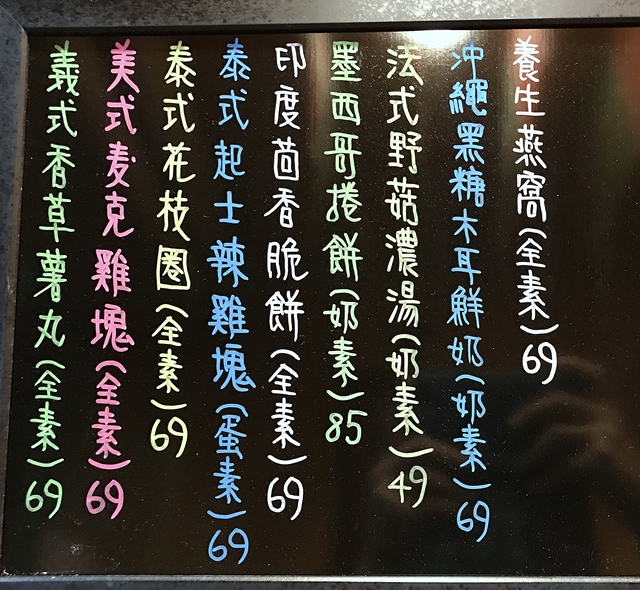 養生燕窩(全素)69
沖繩黑糖木耳鮮奶(奶素)69
法式野菇濃湯(奶素)49
墨西哥捲餅(奶素)85
印度茴香脆餅(全素)69
泰式起士辣雞塊(蛋素)69
泰式花枝圈(全素)69
美式麥克雞塊(全素)69
義式香草薯丸(全素)69